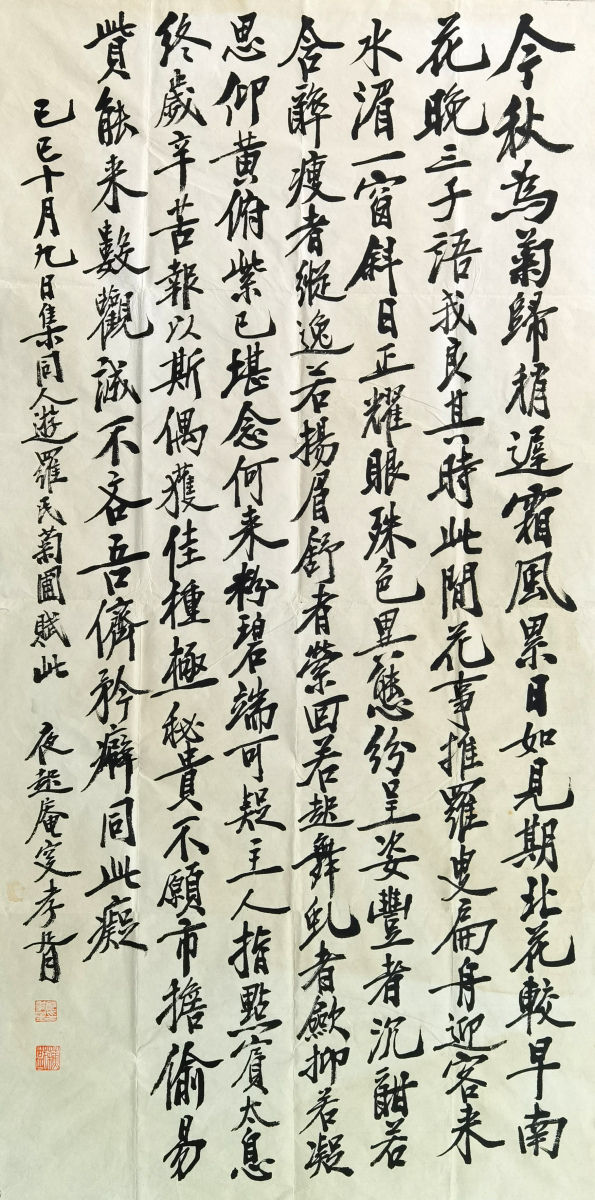 今秋為菊歸稍遲霜風累日如見期北花較早南
花晚三子語我良其時此間花事推羅叟扁舟迎客来
水湄一窗斜日正耀眼殊色異態紛呈姿豐者沉酣若
含醉瘦者縱逸若揚眉舒者縈回若起舞亂者斂抑若凝
思仰黄俯紫已堪念何来粉碧端可疑主人指點賓太息
终歲辛苦報以斯偶獲佳種極秘貴不願市擔偷易
貲能来數觀誠不吝吾儕矜癖同此癡
己巳十月九日集同人遊羅民菊圃賦此 夜起庵叟孝胥